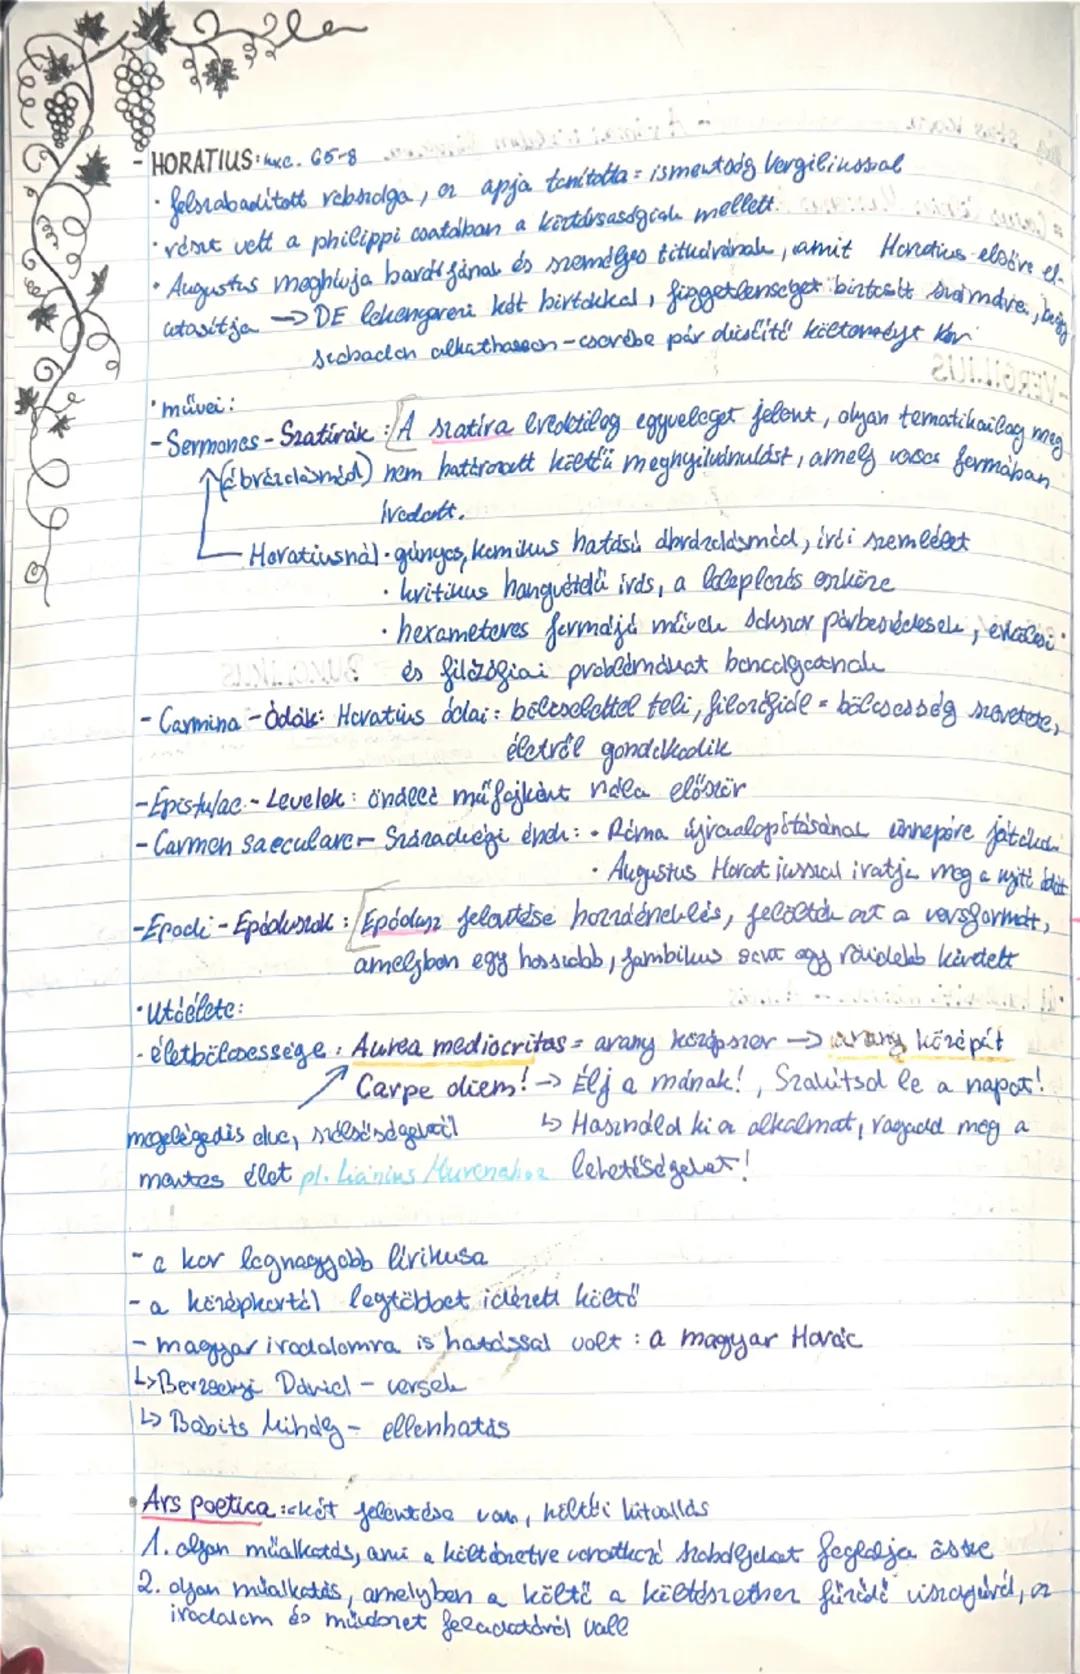 - HORATIUS: i.e. 65-8
· felszabadított rabszolga, az apja tanította = ismeretség Vergiliussal
· részt vett a philippi csatában a köztársaságiak mellett
· Augustus meghívja barátjának és személyes titkárának, amit Horatius elsőre el-
utasítja → DE lekenyerezi két birtokkal, függetlenséget biztosít számára, hogy
szabadon alkothasson - cserébe pár dicsőítő költeményt kér
· művei:
- Sermones - Szatírák : A szatíra eredetileg egyveleget jelent, olyan tematikailag meg
(ábrázolásmód) nem határozott költői megnyilvánulást, amely vers formában
íródott.
Horatiusnál · gúnyos, komikus hatású ábrázolásmód, írói szemlélet
· kritikus hangvételű írás, a leleplezés eszköze
· hexameteres formájú művek sokszor párbeszédesek, erkölcsi
és filozófiai problémákat boncolgatnak
- Carmina - Ódák: Horatius ódai: bölcselettel teli, filozófiai = bölcsesség szeretete,
életről gondolkodik
- Epistulae - Levelek : önálló műfajként nála először
- Carmen saeculare - Századvégi ének: · Róma újraalapításának ünnepére játékok
· Augustus Horatiussal íratja meg a nyitó ódát
- Epodi - Epódoszok : Epódosz jelentése hozzáéneklés, jelölték ezt a versformát,
amelyben egy hosszabb, jambikus sort egy rövidebb követett
· Utóélete:
- életbölcsessége : Aurea mediocritas = arany középszer → arany középút
Carpe diem! → Élj a mának!, Szakítsd le a napot!
megelégedés elve, szélsőségektől ↳ Használd ki a alkalmat, ragadd meg a
mentes élet pl. Liánius Murenához lehetőségeket!
- a kor legnagyobb lírikusa
- a középkortól legtöbbet idézett költő
- magyar irodalomra is hatással volt : a magyar Horác
↳ Berzsenyi Dániel - versek
↳ Babits Mihály - ellenhatás
· Ars poetica : két jelentése van, költői hitvallás
1. olyan műalkotás, ami a költészetre vonatkozó szabályokat foglalja össze
2. olyan műalkotás, amelyben a költő a költészethez fűződő viszonyáról, az
irodalom és művészet feladatáról vall